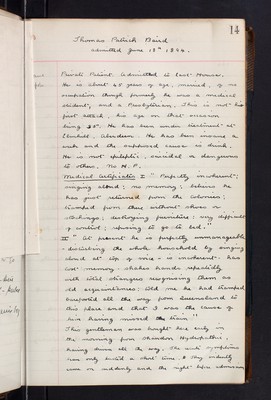 14
Thomas Patrick Baird
Admitted June 13th 1894.
Private Patient. Admitted to East House.
He is about 45 years of age, married, of no
occupation though formerly he was a medical
student, and a Presbyterian. This is not his
first attack, his age on that occasion
being 35. He has been under treatment at
Elmhill, Aberdeen. He has been insane a
week and the supposed cause is drink.
He is not epileptic, suicidal or dangerous
to others. No H.P.
Medical Certificates I "Perfectly incoherent;
singing aloud; no memory; believes he
has just returned from the Colonies;
tramped from there without shoes or
stockings; destroying furniture; very difficult
of control; refusing to go to bed."
II "At present he is perfectly unmanageable
- disturbing the whole household by singing
aloud at top of voice - is incoherent - has
lost memory - shakes hands repeatedly
with total strangers recognising them as
old acquaintances. Told me he had tramped
barefooted all the way from Queensland to
this place and that I was the cause of
him having missed the train"!!
This gentleman was brought here early in
the morning from Hydropathic,
having driven all the way. The acute symptoms
had only lasted a short time. They suddenly
came on and the night before admission